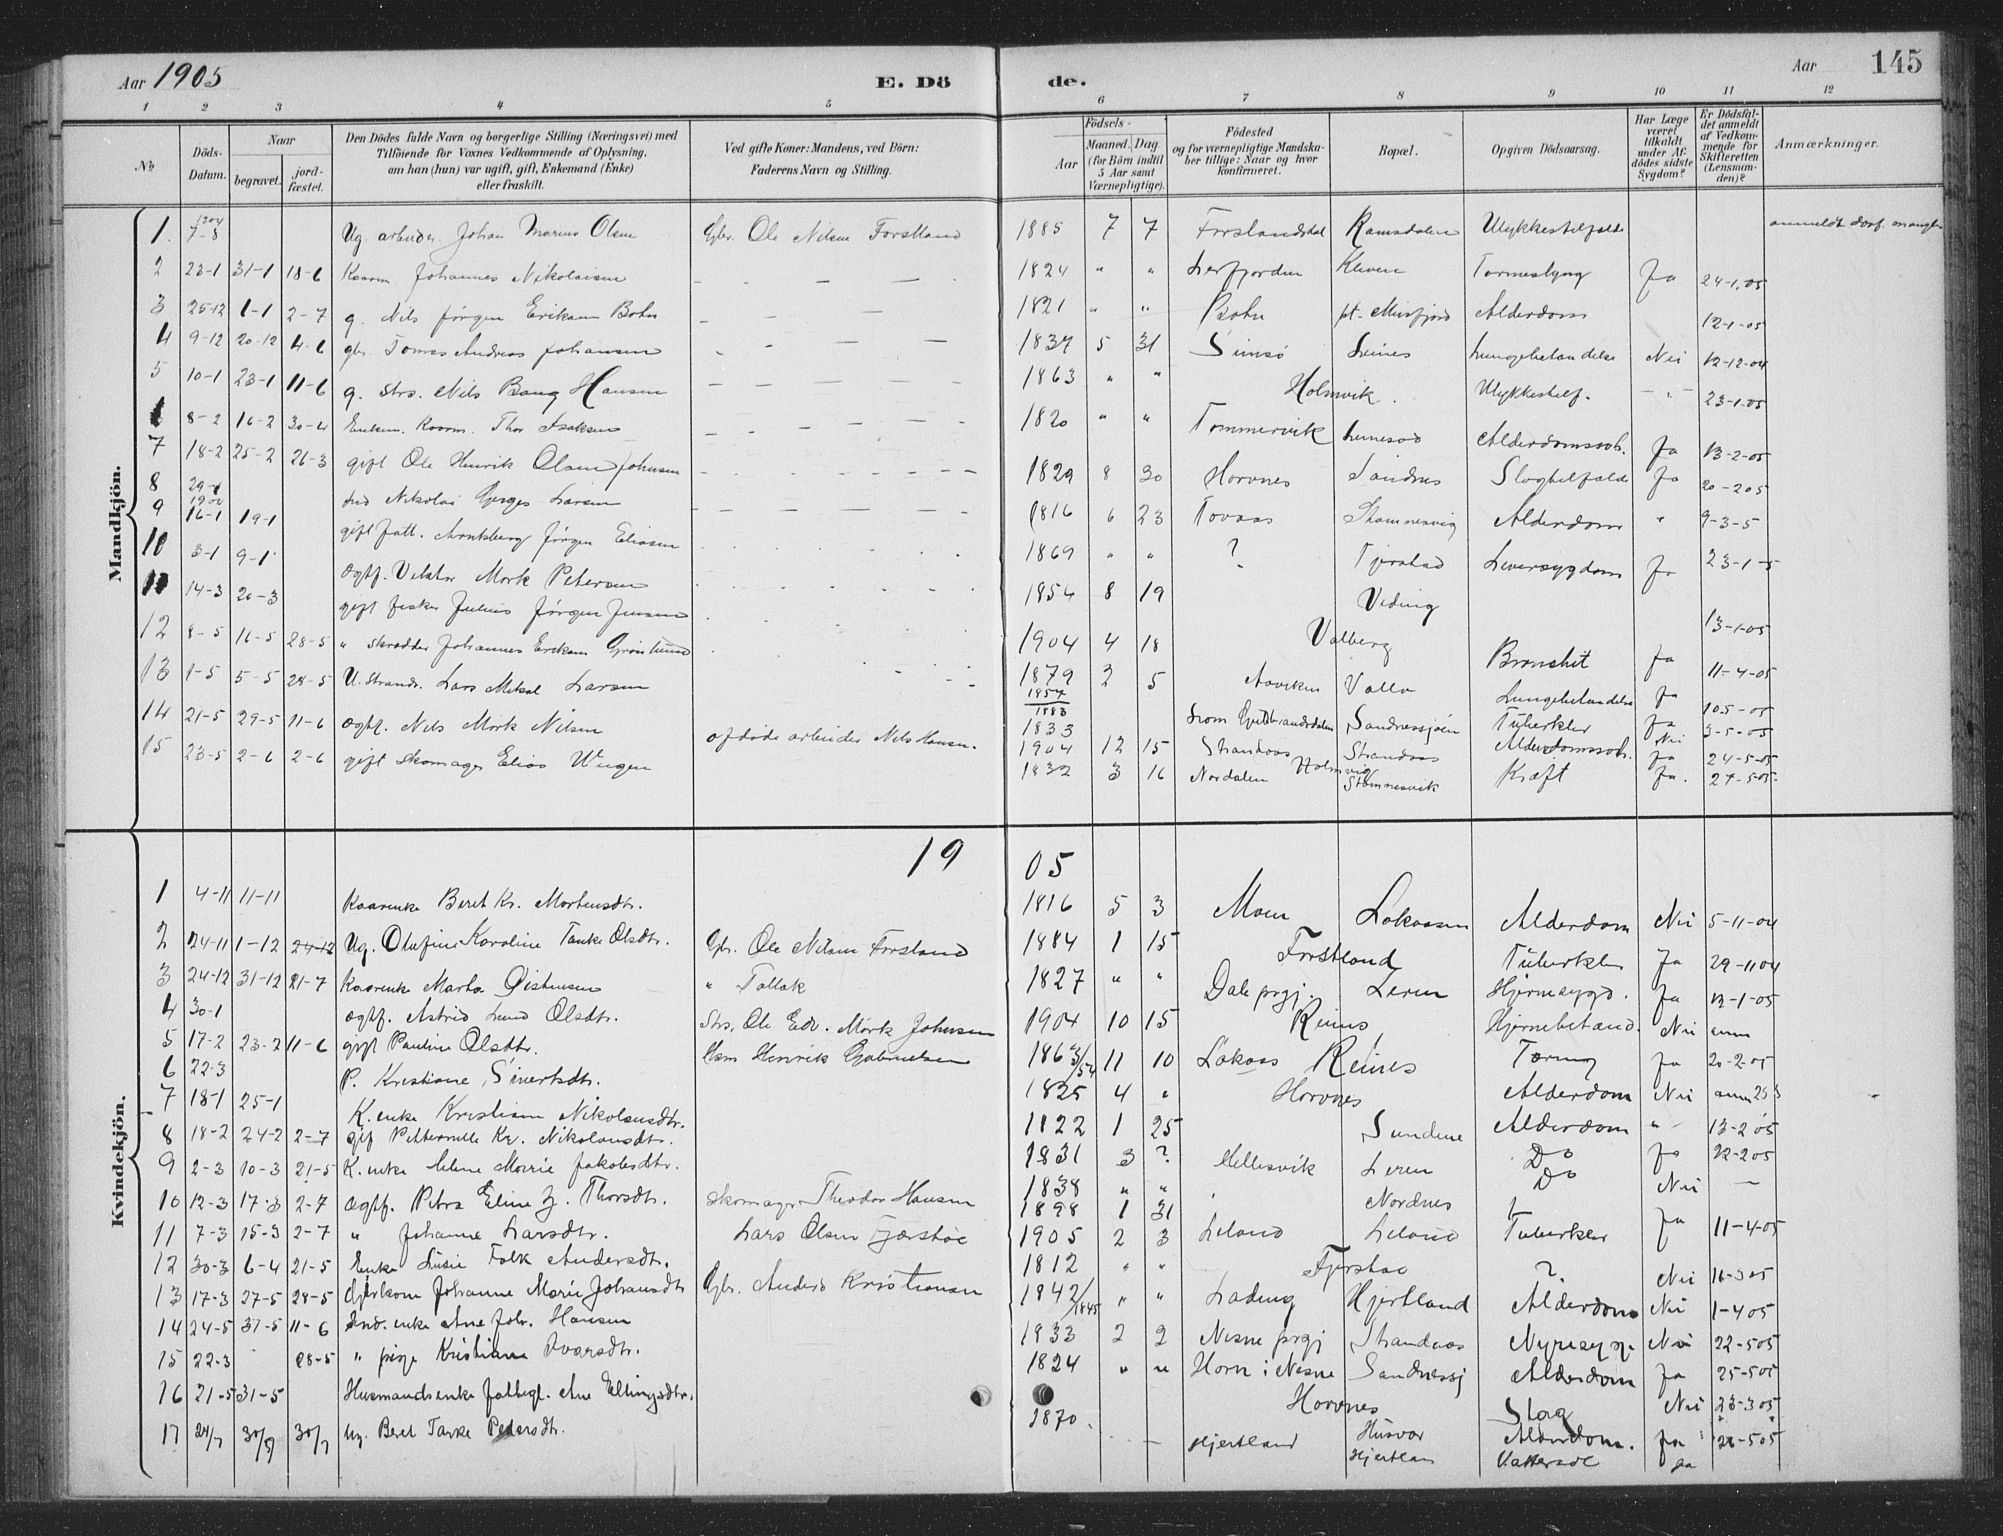 Aar 1905
E. Dö
de.
Aar
145
1 2 3 4 5 6 7 8 9 10 11 12
№
Döds-
Datum.
Naar
begravet.
jord-
fæstet.
Den Dödes fulde Navn og borgerlige Stilling (Næringsvei) med
Tilföiende for Voxnes Vedkommende af Oplysning,
om han (hun) var ugift, gift, Enkemand (Enke)
eller fraskilt.
Ved gifte Koner: Mandens, ved Börn:
Faderens Navn og Stilling.
Födsels-
Aar
Maaned. Dag.
(for Börn indtil
5 Aar samt
Værnepligtige).
Födested
og for værnepligtige Mandska-
ber tillige: Naar og hvor
konfirmeret.
Bopæl.
Opgiven Dödsaarsag.
Har Læge
været
tilkaldt
under Af-
dödes sidste
Sygdom?
Er Dödsfal-
det anmeldt
af Vedkom-
mende for
Skifteretten
(Lensman-
den)?
Anmærkninger.
Mandkjön.
1. 1904 7-8 Ug. arbeider Johan Marius Olsen Gbr. Ole Nilsen Forsland 1885 7 7 Forslandsdal Ramsdalen Ulykkestilfælde
2 23-1 31-1 18-6 Kaarm Johannes Nikolaisen 1824 " " Leirfjorden Kleven ja 24-1-05
3 25-12 1-1 2-7 g. Nils Jörgen Eriksen Bohn 1821 " " Bohn pt. Meisfjord Alderdom 12-1-05
4 9-12 20-12 4-6 gbr. Tomas Andreas Johansen 1837 5 31 Simsö Leines Lungebetændelse Nei 12-12-04
5 10-1 23-1 11-6 g. Strs. Nils Bang Hansen 1863 " " Holmvik Ulykkestilf. 23-1-05
8-2 16-2 30-4 Enkem. Kaarm. Thor Isaksen 1820 " " Tommervik Leinesod Alderdomssv. ja 13-2-05
7 18-2 25-2 26-3 gift Ole Henrik Olsen Johnsen 1829 8 30 Horvnes Sandnes Slagtilfælde ja 20-2-05
8 Ind Nikolai Larsen 1816 6 23 Tovaas Stamnesvig Alderdom " 9-3-5
9 16-1 19-1 gift fatt. Arntsberg Jörgen Eliasen 1869 " " ? Tjerstad Leversygdom ja 23-1-5
10 3-1 9-1 ogtf. Viktor Mork Petersen 1854 8 19 Veding 13-1-05
11 14-3 20-3 gift fisker Julius Jörgen Jensen 1904 4 18 Valberg Bronchit ja 11-4-05
12 8-5 16-5 28-5 " Skrædder Johannes Eriksen 1879 2 5 Aaviken Valla Lungebetændelse ja 10-5-05
13 1-5 5-5 28-5 U. Strands. Lars Mikal Larsen 1857 1883 from Gudbrandsdalen Sandnessjöen Tuberkler ja 3-5-05
14 21-5 29-5 11-6 ogtf. Nils Mork Nilsen afdöde arbeider Nils Hansen. 1833 Nei
15 23-5 2-6 2-6 gift Skomager Elias Wigen 1904 12 15 Strandaas Strandaas Alderdomssv. ja 24-5-05
1832 3 16 Nordalen Holmvig Stamnesvik Kræft ja. 24-5-05
Kvindekjön.
19 05
1 4-11 11-11 Kaarenke Beret Kr. Mortensdtr. 1816 5 3 Moen Lokaasen Alderdom Nei 5-11-04
2 24-11 1-12 24-12 Ug. Olufine Karoline Tanke Olsdtr. Gbr. Ole Nilsen Forsland 1884 1 15 Forstland Tuberkler Ja 29-11 04
3 24-12 31-12 21-7 Kaarenke Marta Öistensen " Tollak 1827 " " Dale prgj. Leren Hjernesygd. ja 13-1-05
4 30-1 ogtf. Astrid Lund Olsdtr. Strs. Ole Edv. Mörk Johnsen 1904 10 15 Reines Hjernebetænd. Nei anm
5 17-2 23-2 11-6 gift Pauline Olsdtr. Hsm Henrik Gabrielsen 1863/54 11 10 Lokaas Reines Tæring ja 20-2-05
6 22-3 P. Kristiane Sivertsdtr. 1825 4 " Horvnes Alderdom Nei anm 23 3
7 18-1 25-1 K. enke Kristian Nikolausdtr. 1822 1 25 Sundene Alderdom " 13-2 05
8 18-2 24-2 2-7 gif Petternille Kr. Nikolausdtr. 1831 3 ? Hellesvik Leren Do ja 22-2 05
9 2-3 10-3 21-5 K. enke Helene Marie Jakobsdtr. 1838 " " Nordnes Do Nei —
10 12-3 17-3 2-7 ogtf. Petra Eline J. Thorsdtr. Skomager Theodor Hansen 1898 1 31
11 7-3 15-3 2-7 " Johanne Larsdtr. Lars Olsen Fjærstöe 1905 2 3 Leland Leland Tuberkler ja 11-4-05
12 30-3 6-4 21-5 Enke Lusie Falk Andersdtr. 1812 " " Fjerstad ? Nei 16-3 05
13 17-3 27-5 28-5 Gjerkone Johanne Marie Johansdtr Gbr. Anders Kristiansen 1842/1845 " " Lading Hjertland Alderdom Nei 1-4 05
14 24-5 31-5 11-6 Ind. enke Ane Joh. Hansen 1833 2 2 Nesne prgj Strandaas Nyresyge Nei 22-5 05
15 22-3 28-5 " pige Kristiane Ivarsdtr. 1824 " " Horn i Nesne Sandnessj Alderdom ja 25-5 05
16 21-5 31-5 Husmandsenke fattigl. Ane Ellingsdtr. Horvnes Slag Nei 23-3 05
17 24/7 30/7 30/7 Ug. Beret Tanke Pedersdtr. 1870. Husvær Alderdom. ja 28-5 05
Hjertland Hjertlan Vattersot ja